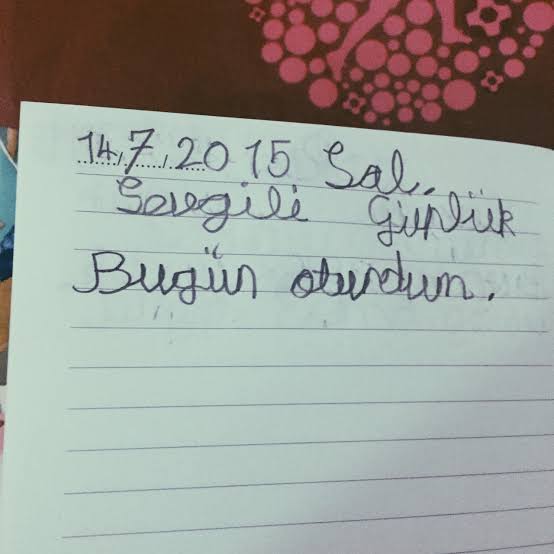 14.7.2015 Sal.
Sevgili Günlük
Bugün oturdum.